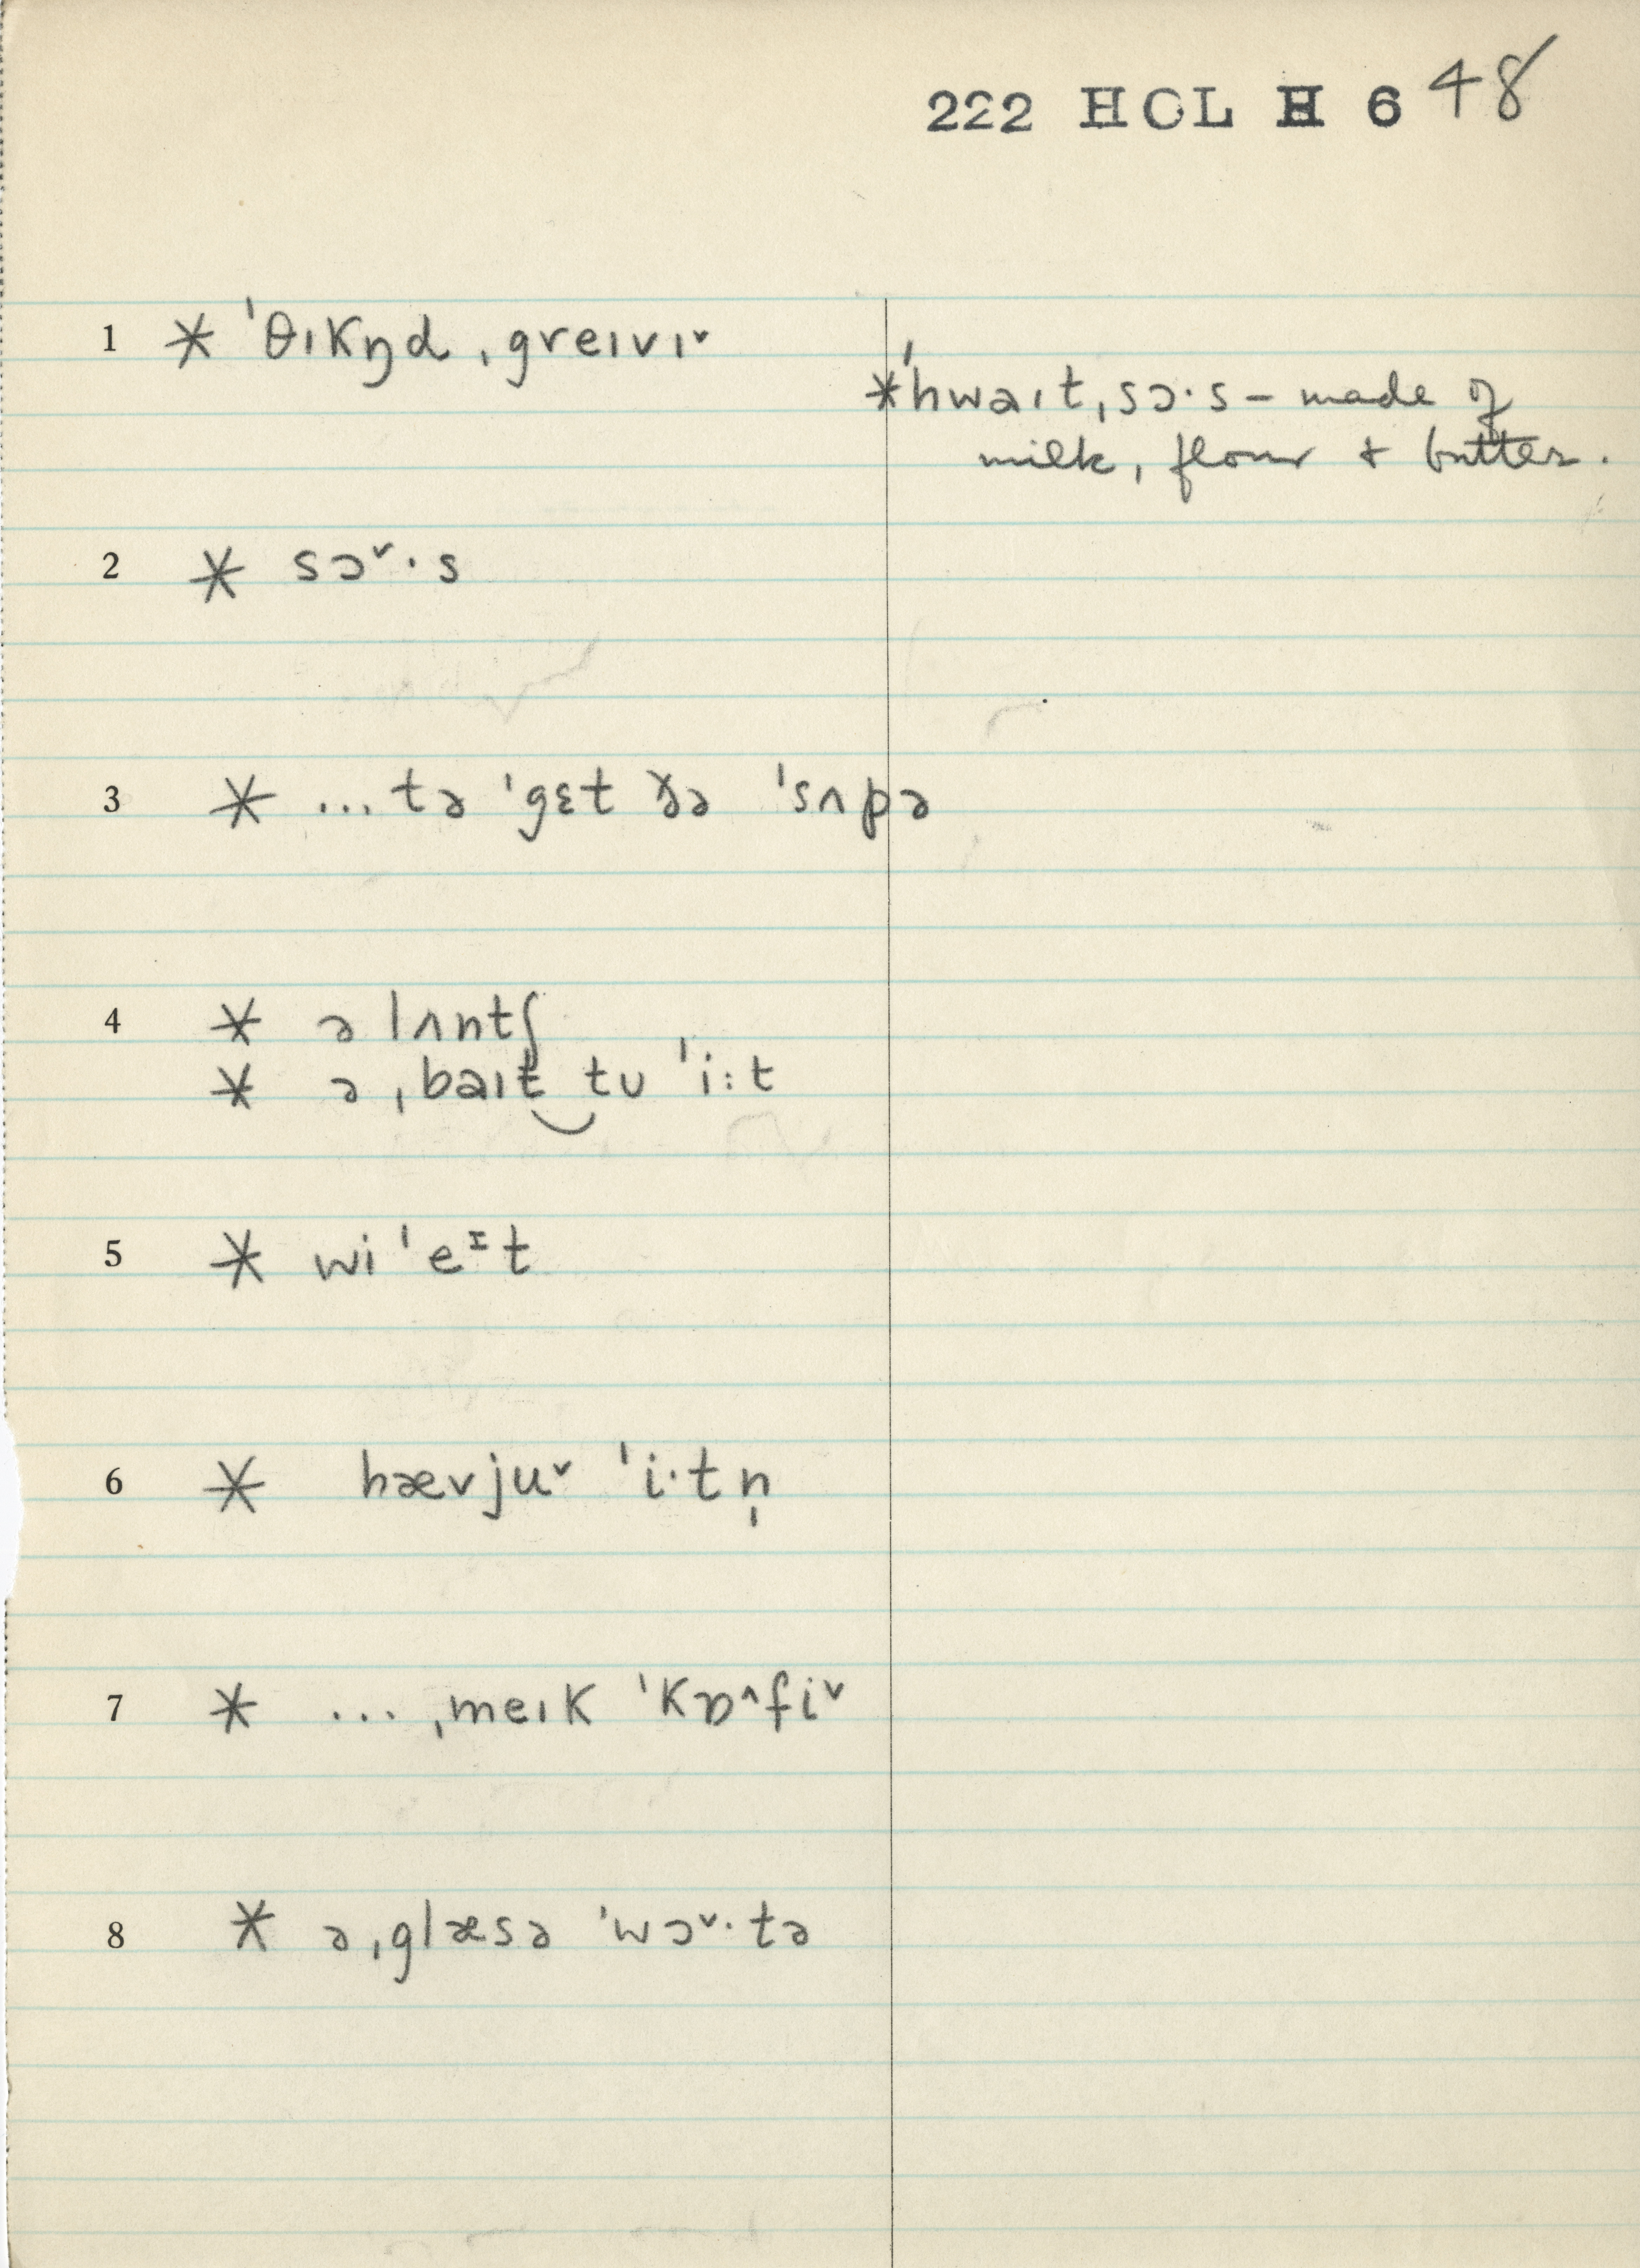 222 HOL H 6 48
1 * ˈθɪkŋd ˌgreɪvɪˇ
*ˈhwaɪt ˌsɔ·s – made of
milk, flour + butter.
2 * sɔˇ·s
3 * ... tə ˈgɛt ðə ˈsʌpə
4 * ə lʌntʃ
* ə ˌbaɪt‿tʊ ˈi:t
5 * wi ˈeᶦt
6 * hævjuˇ ˈi·tn̩
7 * ... ˌmeɪk ˈkɒ^fiˇ
8 * ə ˌglæsə ˈwɔˇ·tə